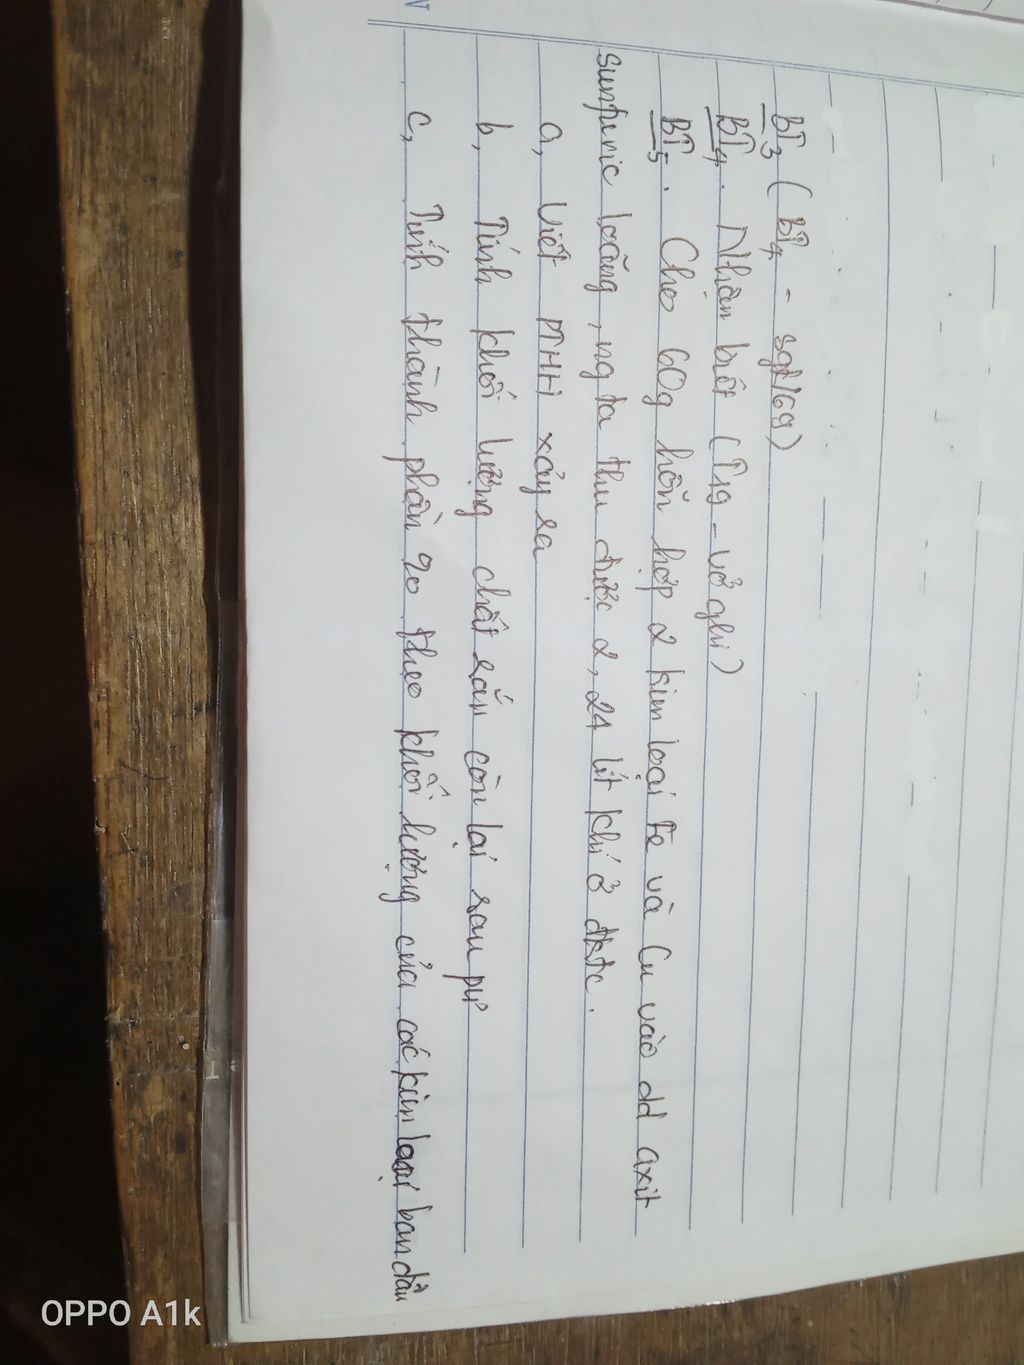 BT3 ( BT4 - sgk/69)
BT4. Nhận biết (T19 - vở ghi)
BT5. Cho 60g hỗn hợp 2 kim loại Fe và Cu vào dd axit
sunperic loãng, ng ta thu được 2,24 lít khí ở đktc.
a, Viết PTHH xảy ra
b, Tính khối lượng chất rắn còn lại sau pư
c, Tính thành phần % theo khối lượng của các kim loại ban đầu
OPPO A1k